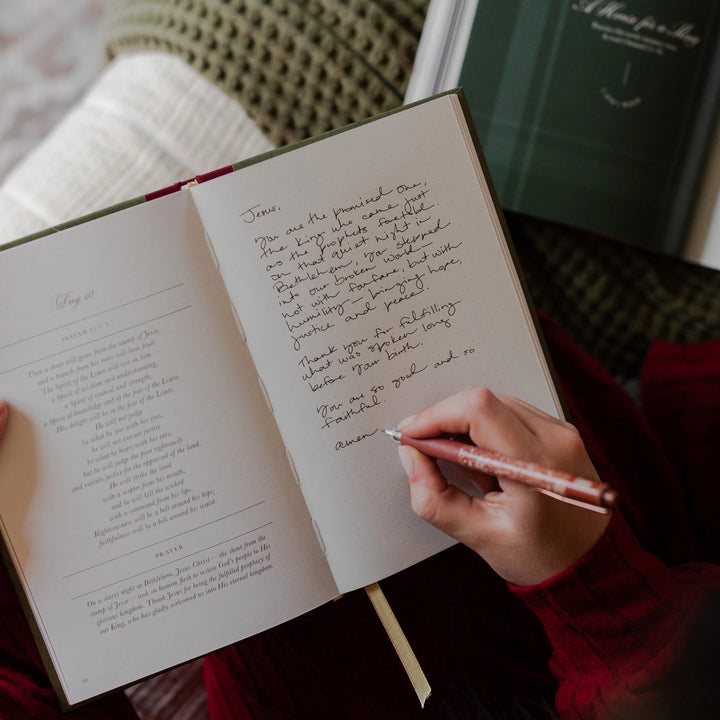 Day 10
ISAIAH 11:1-5
Then a shoot will grow from the stump of Jesse,
and a branch from his roots will bear fruit.
The Spirit of the LORD will rest on him
a Spirit of wisdom and understanding,
a Spirit of counsel and strength,
a Spirit of knowledge and of the fear of the LORD.
His delight will be in the fear of the LORD.
He will not judge
by what he sees with his eyes,
he will not execute justice
by what he hears with his ears,
but he will judge the poor righteously
and execute justice for the oppressed of the land.
He will strike the land
with a scepter from his mouth,
and he will kill the wicked
with a command from his lips.
Righteousness will be a belt around his hips;
faithfulness will be a belt around his waist.
PRAYER
On a starry night in Bethlehem, Jesus Christ — the shoot from the
stump of Jesse — took on human flesh to restore God's people to His
glorious kingdom. Thank Jesus for being the fulfilled prophecy of
our King, who has gladly welcomed us into His eternal kingdom.
Jesus,
You are the promised One,
the King who came just
as the prophets foretold.
On that quiet night in
Bethlehem, You stepped
into our broken world—
not with fanfare, but with
humility—bringing hope,
justice and peace.
Thank you for fulfilling
what was spoken long
before Your birth.
You are so good and so
faithful.
amen